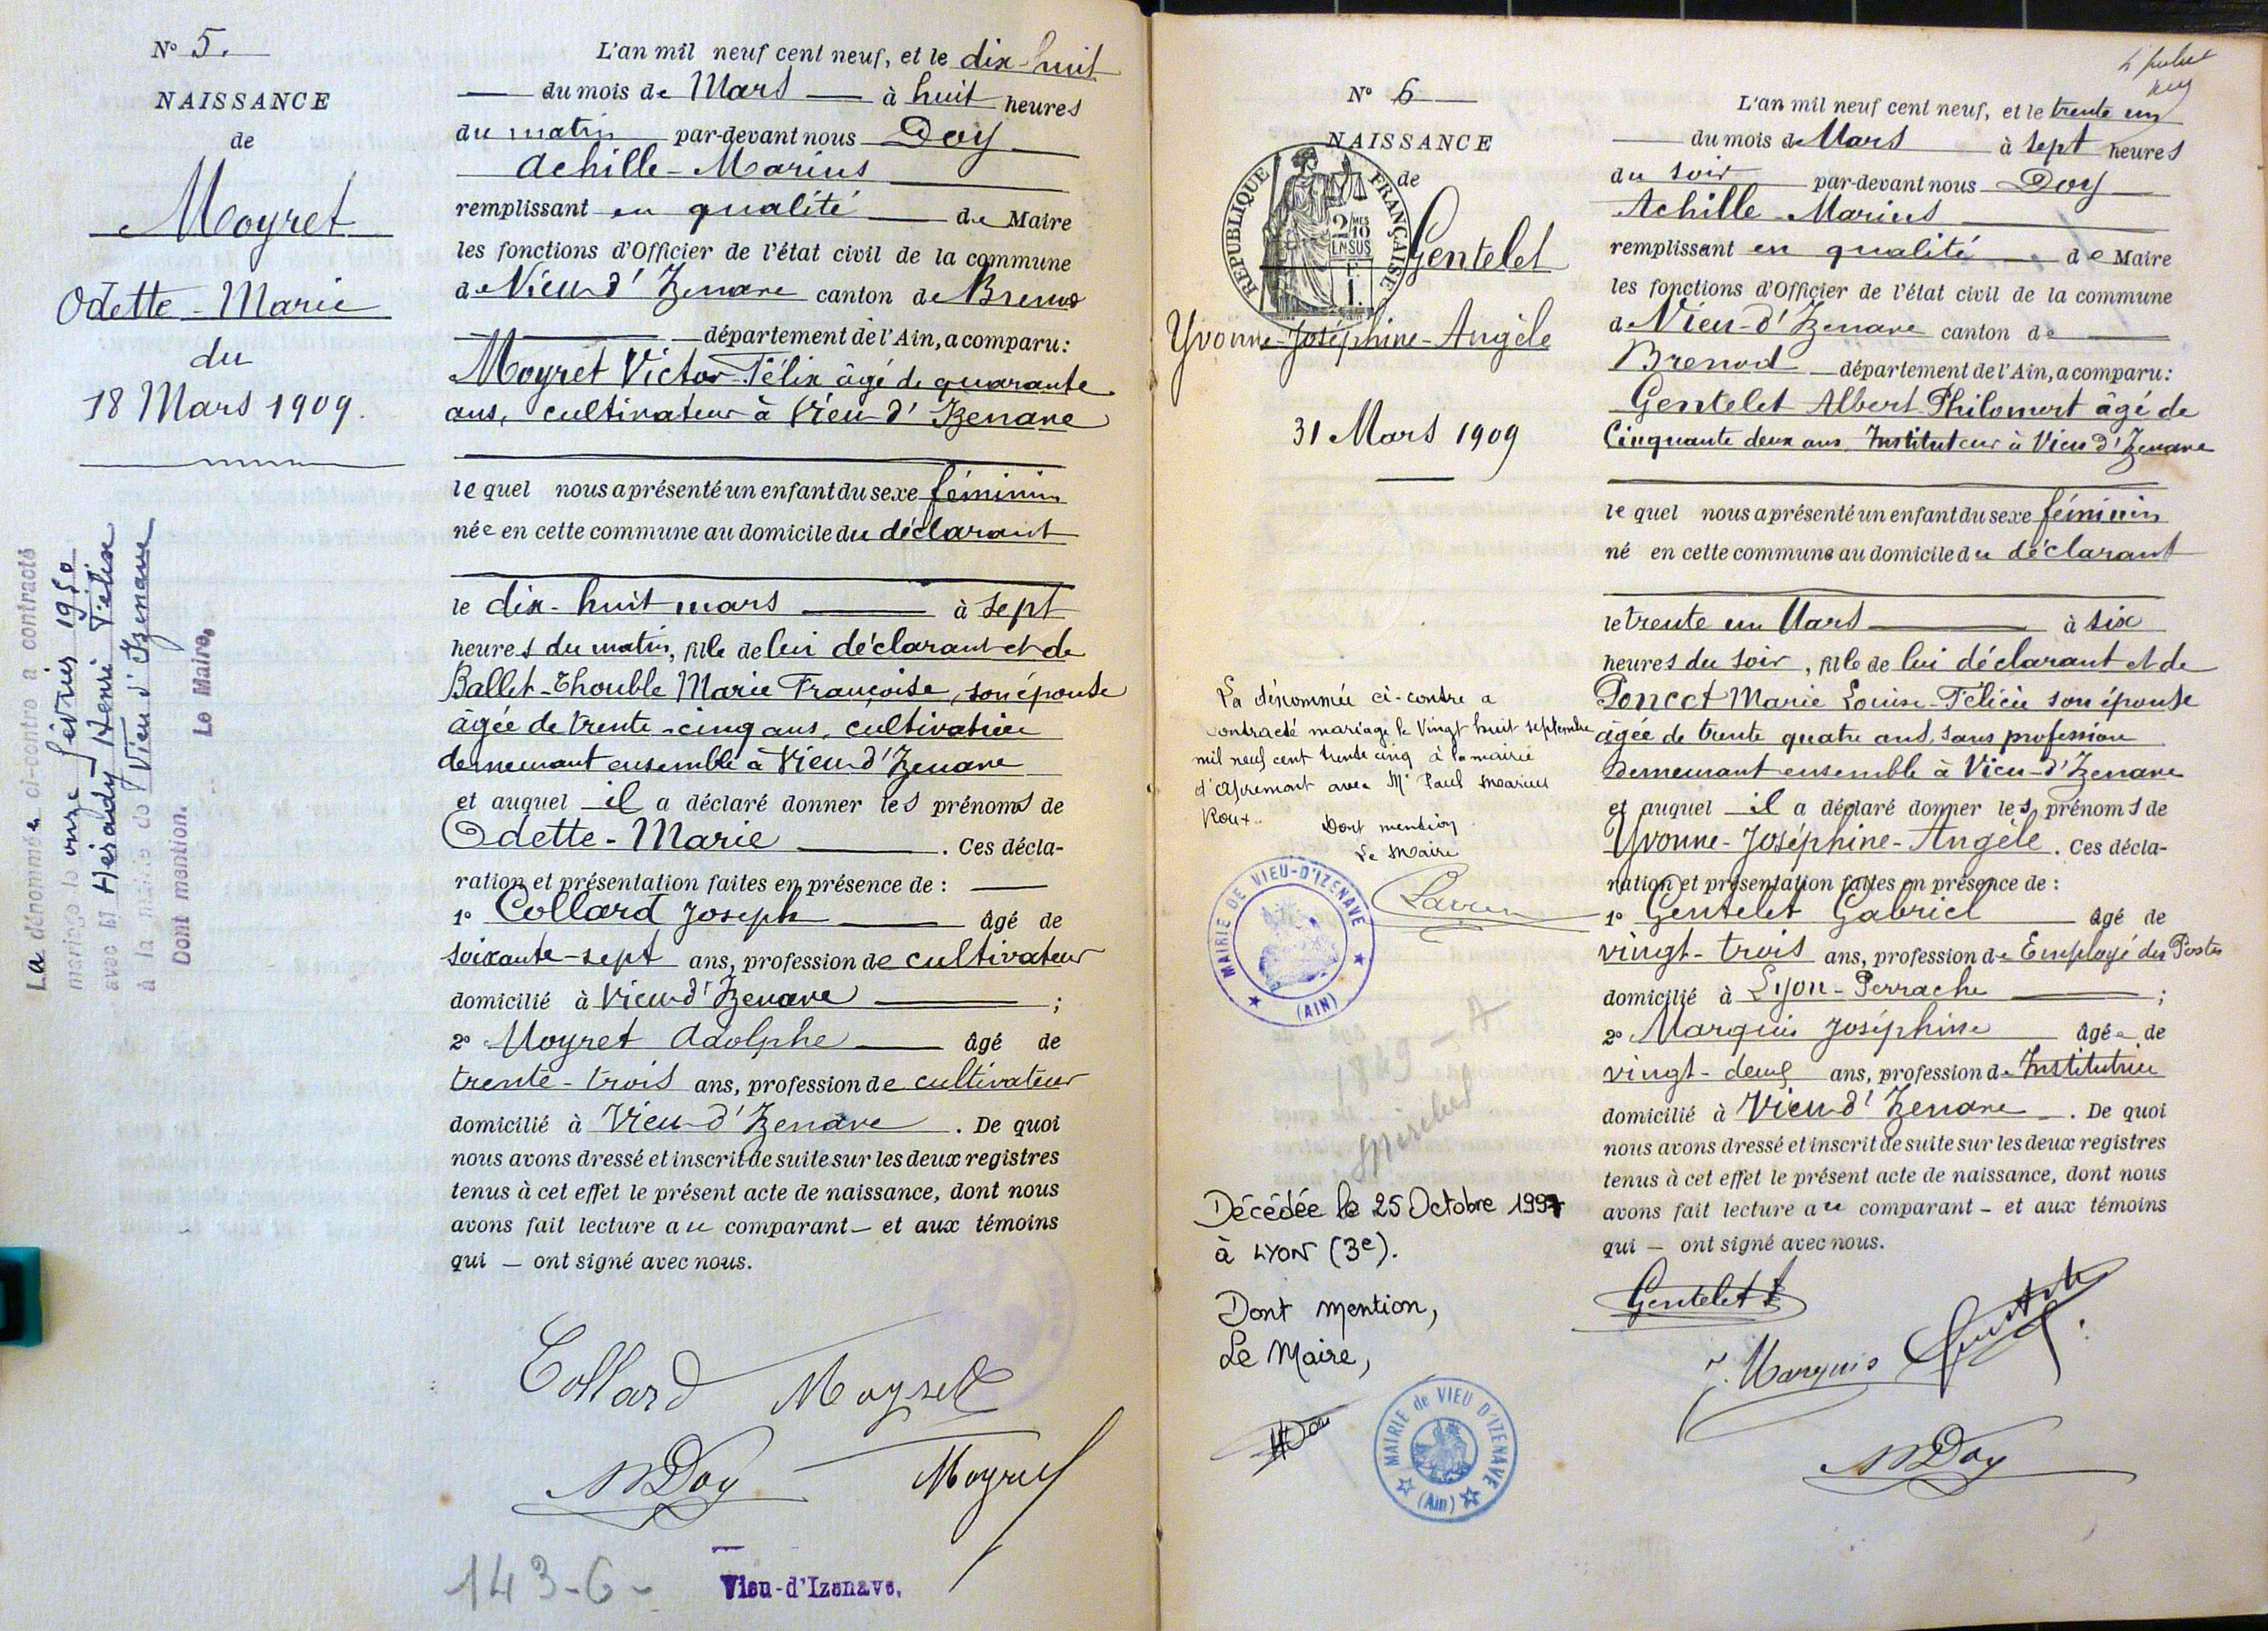 N° 5.
NAISSANCE
de
Moyret
Odette - Marie
du
18 Mars 1909.
La dénommée ci-contre a contracté
mariage le onze février 1950
avec M Henri Félix
à la mairie de Vieu d'Izenave
Dont mention.
Le Maire,
L'an mil neuf cent neuf, et le dix-huit
du mois de Mars à huit heures
du matin par-devant nous Doy
Achille - Marius
remplissant en qualité de Maire
les fonctions d'Officier de l'état civil de la commune
de Vieu d'Izenave canton de Brenod
département de l'Ain, a comparu:
Moyret Victor-Félix âgé de quarante
ans, cultivateur à Vieu d'Izenave
lequel nous a présenté un enfant du sexe féminin
née en cette commune au domicile du déclarant
le dix-huit mars à sept
heures du matin, fille de lui déclarant et de
Ballet-Thouble Marie Françoise, son épouse
âgée de trente-cinq ans, cultivatrice
demeurant ensemble à Vieu d'Izenave
et auquel il a déclaré donner les prénoms de
Odette - Marie . Ces décla-
ration et présentation faites en présence de :
1° Collard Joseph âgé de
soixante-sept ans, profession de cultivateur
domicilié à Vieu d'Izenave ;
2° Moyret Adolphe âgé de
trente-trois ans, profession de cultivateur
domicilié à Vieu d'Izenave . De quoi
nous avons dressé et inscrit de suite sur les deux registres
tenus à cet effet le présent acte de naissance, dont nous
avons fait lecture au comparant - et aux témoins
qui - ont signé avec nous.
Collard Moyret
Doy Moyret
143-6-
Vieu-d'Izenave.
N° 6
NAISSANCE
de
REPUBLIQUE FRANÇAISE
2/10
EN SUS
Gentelet
Yvonne-Joséphine-Angèle
31 Mars 1909
La dénommée ci-contre a
contracté mariage le vingt huit septembre
mil neuf cent trente cinq à la mairie
d'Apremont avec Mr Paul Marius
Roux.
Dont mention
Le Maire
MAIRIE DE VIEU-D'IZENAVE
(AIN)
Décédée le 25 Octobre 1997
à LYON (3e).
Dont mention,
Le Maire,
MAIRIE de VIEU D'IZENAVE
(Ain)
L'an mil neuf cent neuf, et le trente un
du mois de Mars à sept heures
du soir par-devant nous Doy
Achille - Marius
remplissant en qualité de Maire
les fonctions d'Officier de l'état civil de la commune
de Vieu-d'Izenave canton de
Brenod département de l'Ain, a comparu:
Gentelet Albert Philomert âgé de
Cinquante deux ans, Instituteur à Vieu d'Izenave
lequel nous a présenté un enfant du sexe féminin
né en cette commune au domicile du déclarant
le trente un Mars à six
heures du soir, fille de lui déclarant et de
Poncet Marie Louise-Félicie son épouse
âgée de trente quatre ans, sans profession
demeurant ensemble à Vieu-d'Izenave
et auquel il a déclaré donner les prénoms de
Yvonne-Joséphine-Angèle . Ces décla-
ration et présentation faites en présence de :
1° Gentelet Gabriel âgé de
vingt-trois ans, profession de Employé des Postes
domicilié à Lyon-Perrache ;
2° Marquis Joséphine âgée de
vingt-deux ans, profession de Institutrice
domicilié à Vieu d'Izenave . De quoi
nous avons dressé et inscrit de suite sur les deux registres
tenus à cet effet le présent acte de naissance, dont nous
avons fait lecture au comparant - et aux témoins
qui - ont signé avec nous.
Gentelet
J. Marquis
Doy